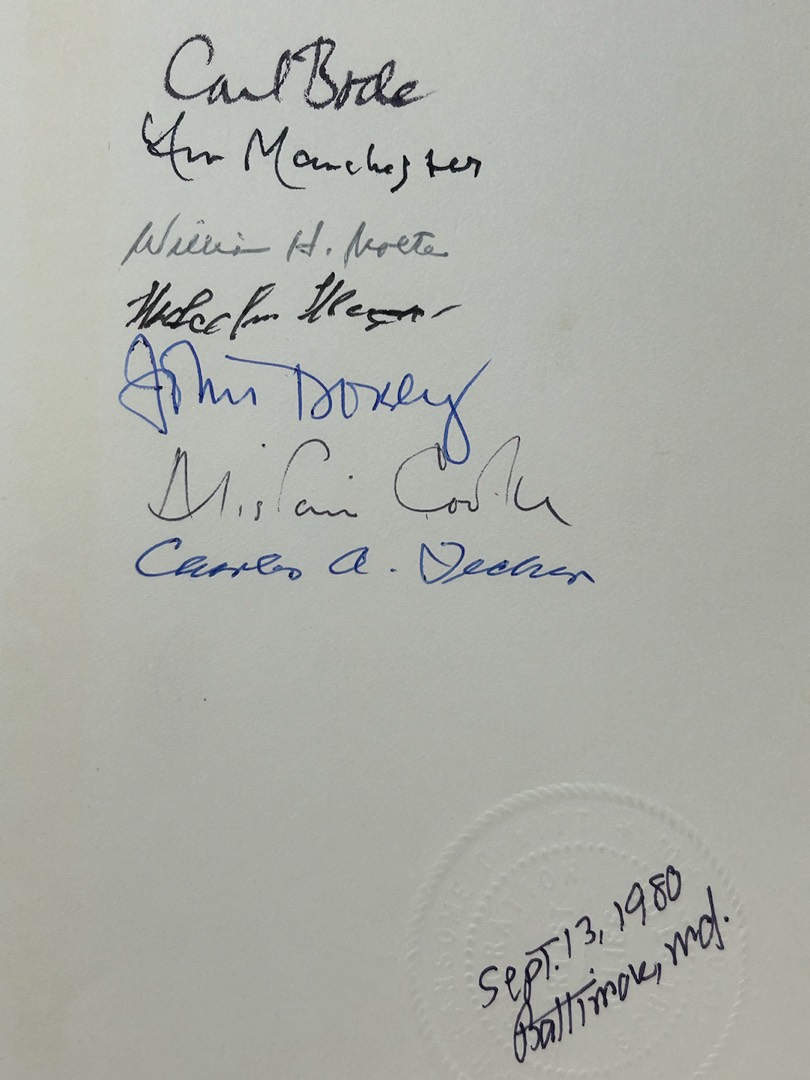 Carl Bode
Wm Manchester
William H. Nolte
Malcolm
John Dorsey
Alistair Cooke
Charles A. Fecher
Sept. 13, 1980
Baltimore, Md.